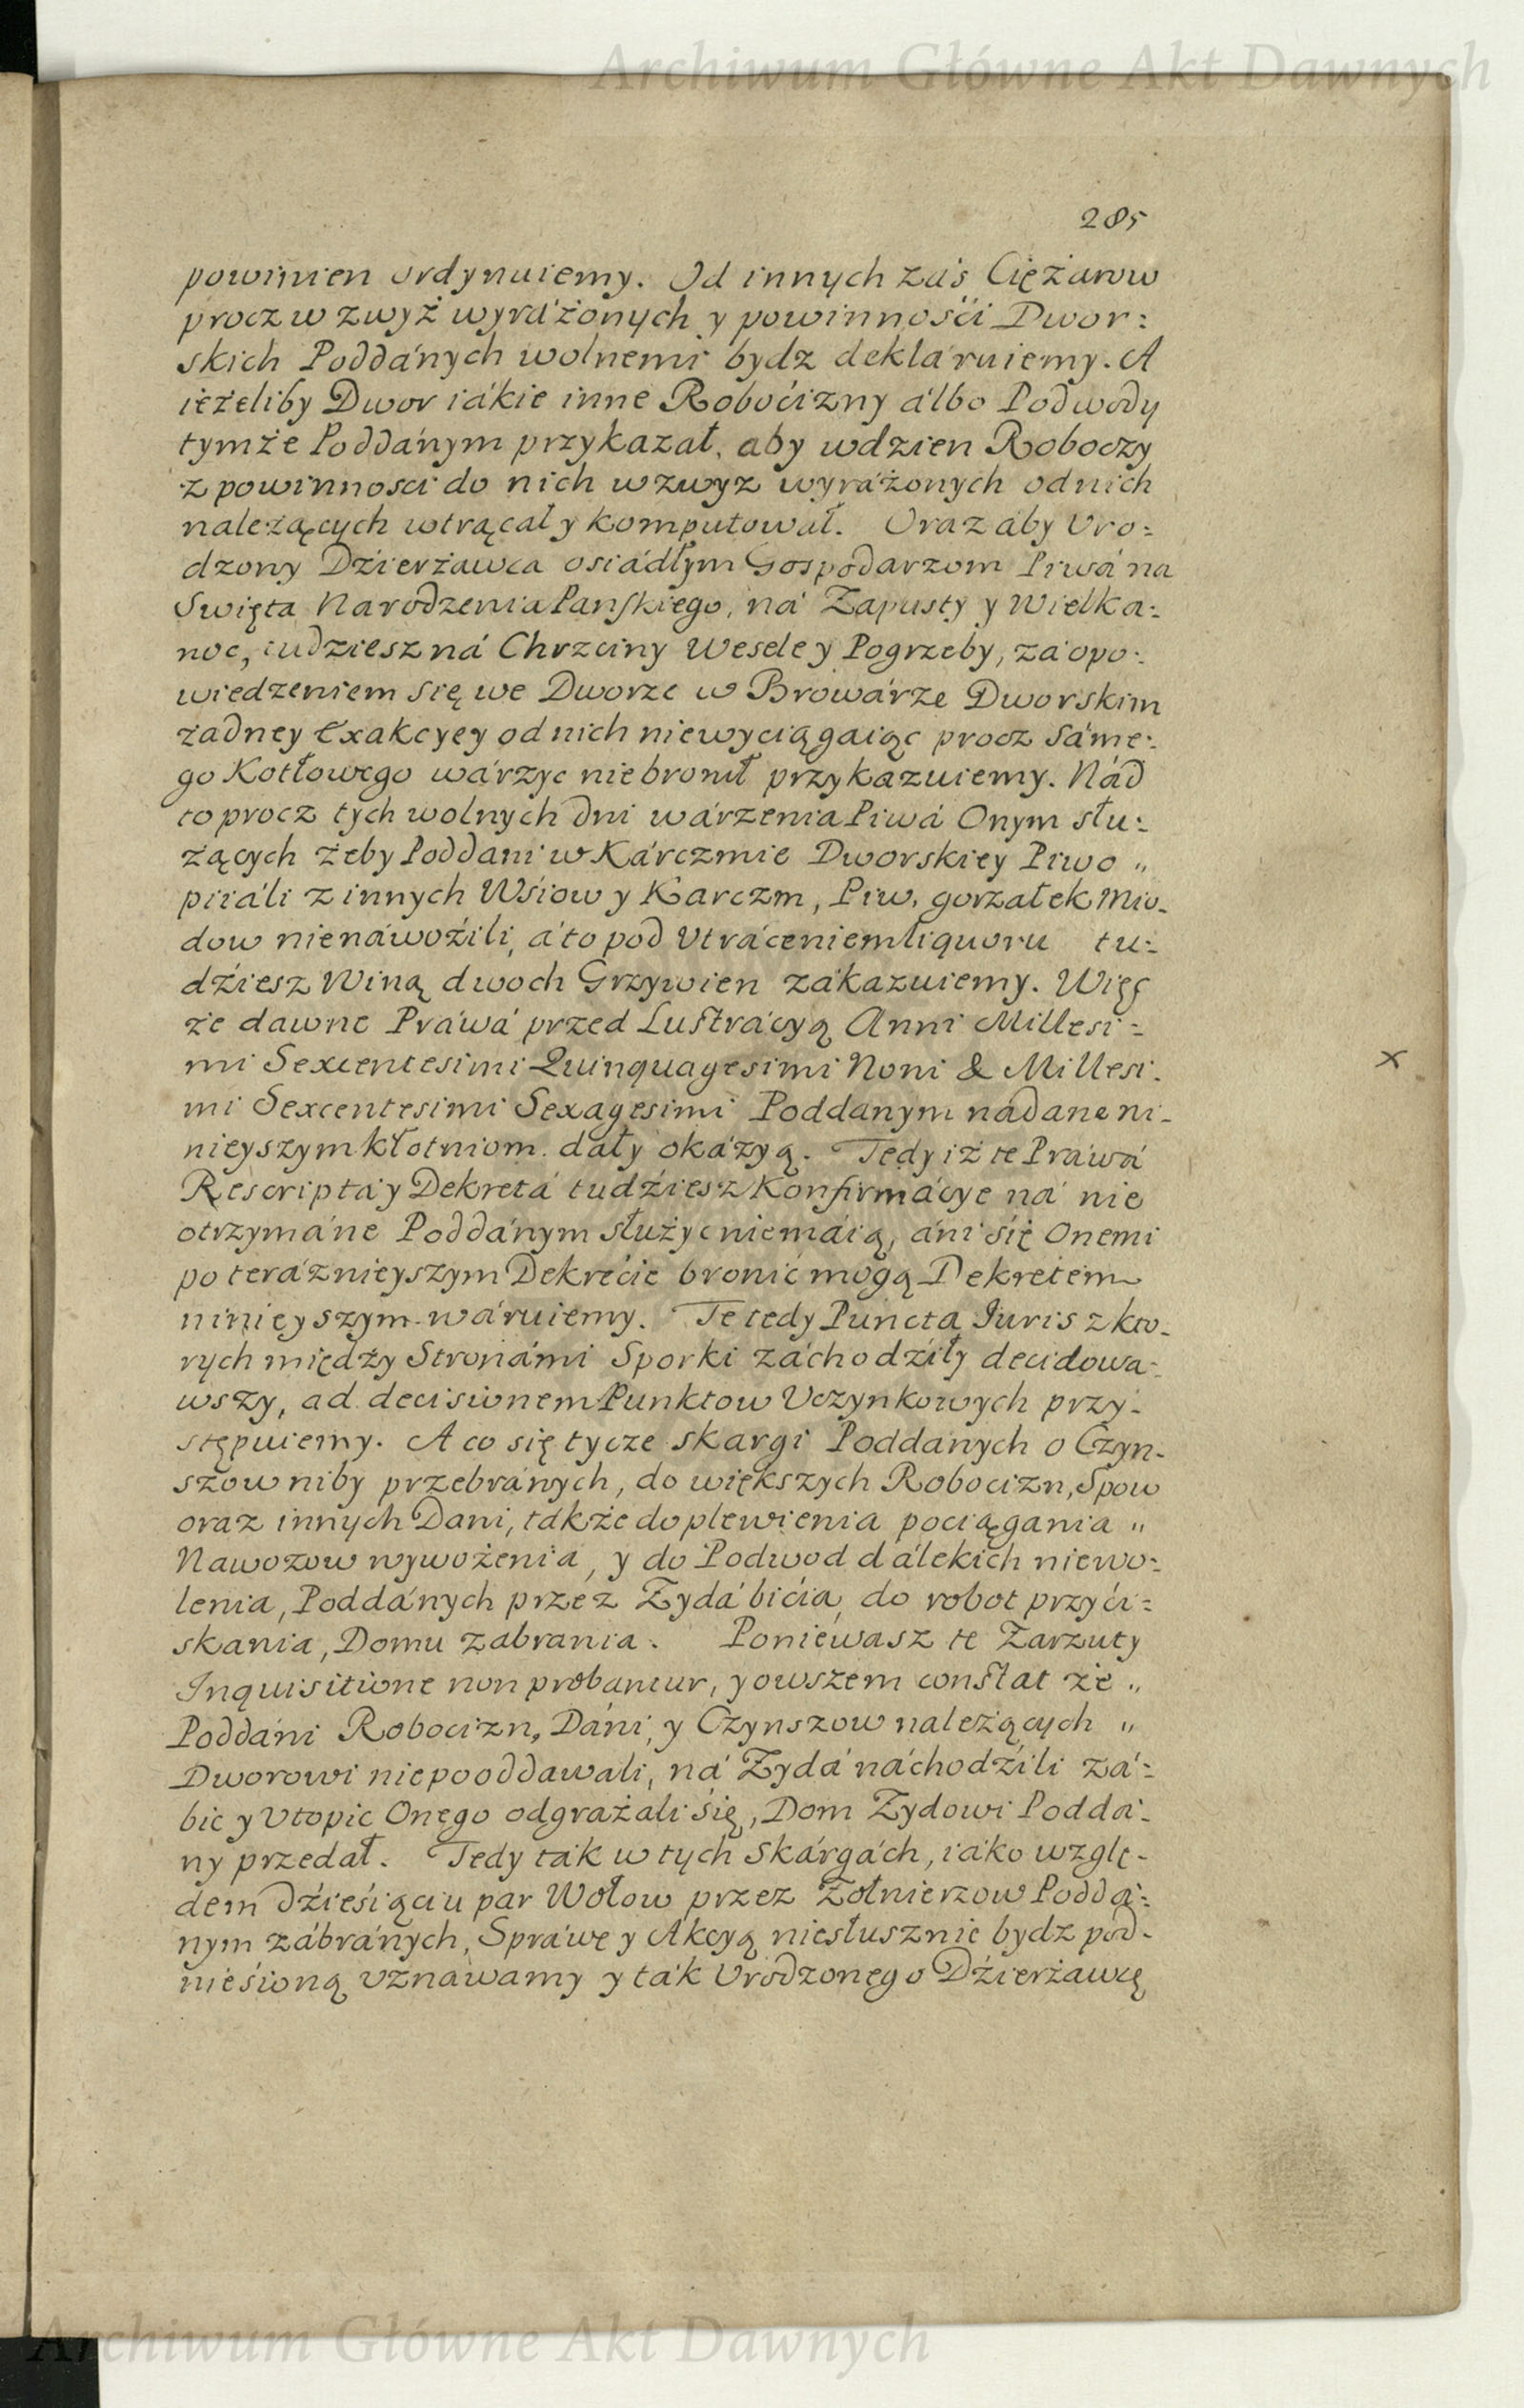 Archiwum Główne Akt Dawnych
285
powinien ordynuiemy. Od innych zaś Ciężarow
procz w zwyż wyráżonych y powinnośći Dwor:
skich Poddánych wolnemi bydz dekláruiemy. A
ieżeliby Dwor iákie inne Robocizny álbo Podwody
tymże Poddánym przykazał, aby w dzien Roboczy
z powinnosci do nich w zwyz wyráżonych od nich
należących wtrącał y komputował. Oraz aby Uro:
dzony Dzierżawca osiádłym Gospodarzom Piwá na
Swięta Narodzenia Panskiego, ná Zapusty y Wielka:
noc, tudziesz ná Chrzciny Wesele y Pogrzeby, zá opo:
wiedzeniem się we Dworze w Browárze Dworskim
żadney Exakcyey od nich niewyciągaiąc procz sáme:
go Kotłowego wárzyc niebronił przykazuiemy. Nád
to procz tych wolnych dni wárzenia Piwá Onym słu:
żących żeby Poddani w Kárczmie Dworskiey Piwo "
piiáli z innych Wśiow y Karczm, Piw, gorzałek Mio-
dow nienáwoźili, á to pod Utráceniem liquoru tu:
dźiesz Winą dwoch Grzywien zákazuiemy. Więc
że dawne Práwá przed Lustrácyą Anni Millesi:
mi Sexcentesimi Quinquagesimi Noni & Millesi.
mi Sexcentesimi Sexagesimi Poddanym nádane ni-
nieyszym kłotniom dały okázyą. Tedy iż te Práwá
Rescripta y Dekretá tudźiesz Konfirmácye ná nie
otrzymáne Poddánym służyc niemáią, áni się Onemi
po teráznieyszym Dekrećie bronić mogą Dekretem
ninieyszym wáruiemy. Te tedy Puncta Iuris z kto-
rych między Stronámi Sporki záchodźiły decidowa:
wszy, ad decisionem Punktow Uczynkowych przy:
stępuiemy. A co się tycze skargi Poddanych o Czyn-
szow niby przebránych, do większych Robocizn, Spow
oraz innych Dani, tákże do plewienia pociągania "
Nawozow wywożenia, y do Podwod dálekich niewo:
lenia, Poddánych przez Zydá bićia, do robot przyći:
skania, Domu zabrania. Poniewasz te Zarzuty
Inquisitione non probantur, y owszem constat że "
Poddáni Robocizn, Dáni, y Czynszow należących "
Dworowi niepooddawali, ná Zydá náchodźili zá:
bic y Utopic Onego odgrażali się, Dom Zydowi Poddá:
ny przedał. Tedy ták w tych Skárgách, iáko wzglę-
dem dźieśiąciu par Wołow przez Zołnierzow Poddá:
nym zábránych, Spráwę y Akcyą niesłusznie bydz pod-
nieśioną uznáwamy y ták Urodzonego Dźierżawcę
x
Archiwum Główne Akt Dawnych